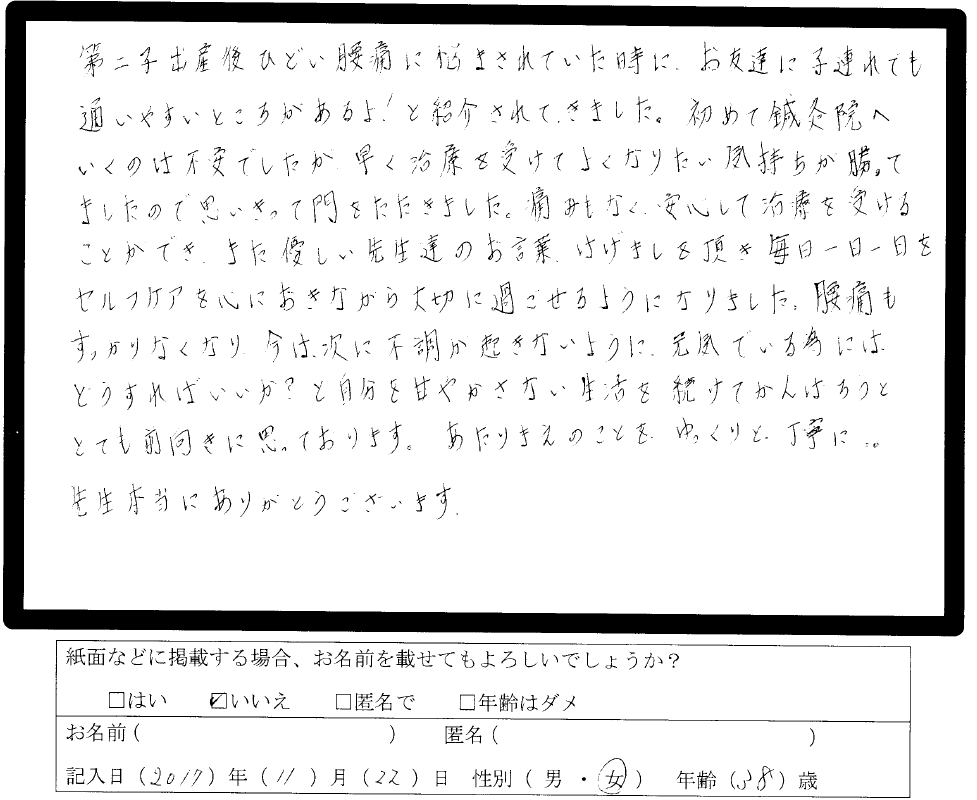 第二子出産後ひどい腰痛に悩まされていた時に、お友達に子連れでも
通いやすいところがあるよ!と紹介されて、きました。初めて鍼灸院へ
いくのは不安でしたが、早く治療を受けてよくなりたい気持ちが勝って
ましたので思いきって門をたたきました。痛みもなく、安心して治療を受ける
ことができ、また優しい先生達のお言葉、はげましを頂き毎日一日一日を
セルフケアを心におきながら大切に過ごせるようになりました。腰痛も
すっかりなくなり、今は、次に不調が起きないように、元気でいる為には
どうすればいいか?と自分を甘やかさない生活を続けてがんばろうと
とても前向きに思っております。あたりまえのことを、ゆっくりと、丁寧に...
先生本当にありがとうございます。
紙面などに掲載する場合、お名前を載せてもよろしいでしょうか?
□はい ☑いいえ □匿名で □年齢はダメ
お名前( ) 匿名( )
記入日(2017)年(11)月(22)日 性別(男・女) 年齢(38)歳